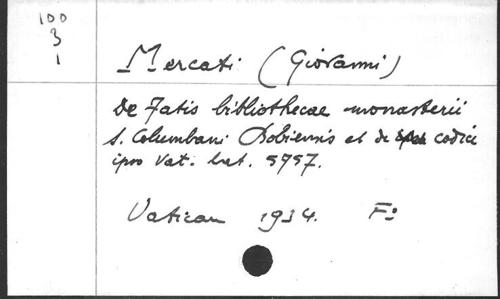 100
3
1
Mercati (Giovanni)
De Fatis bibliothecae monasterii
S. Columbani Bobiensis et de codice
ipso Vat. Lat. 5757.
Vatican 1934. Fº